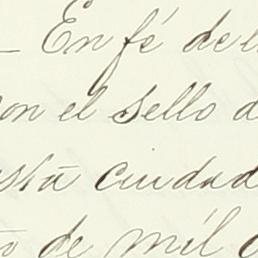 En fé de l
con el sello d
esta ciudad
to de mil o